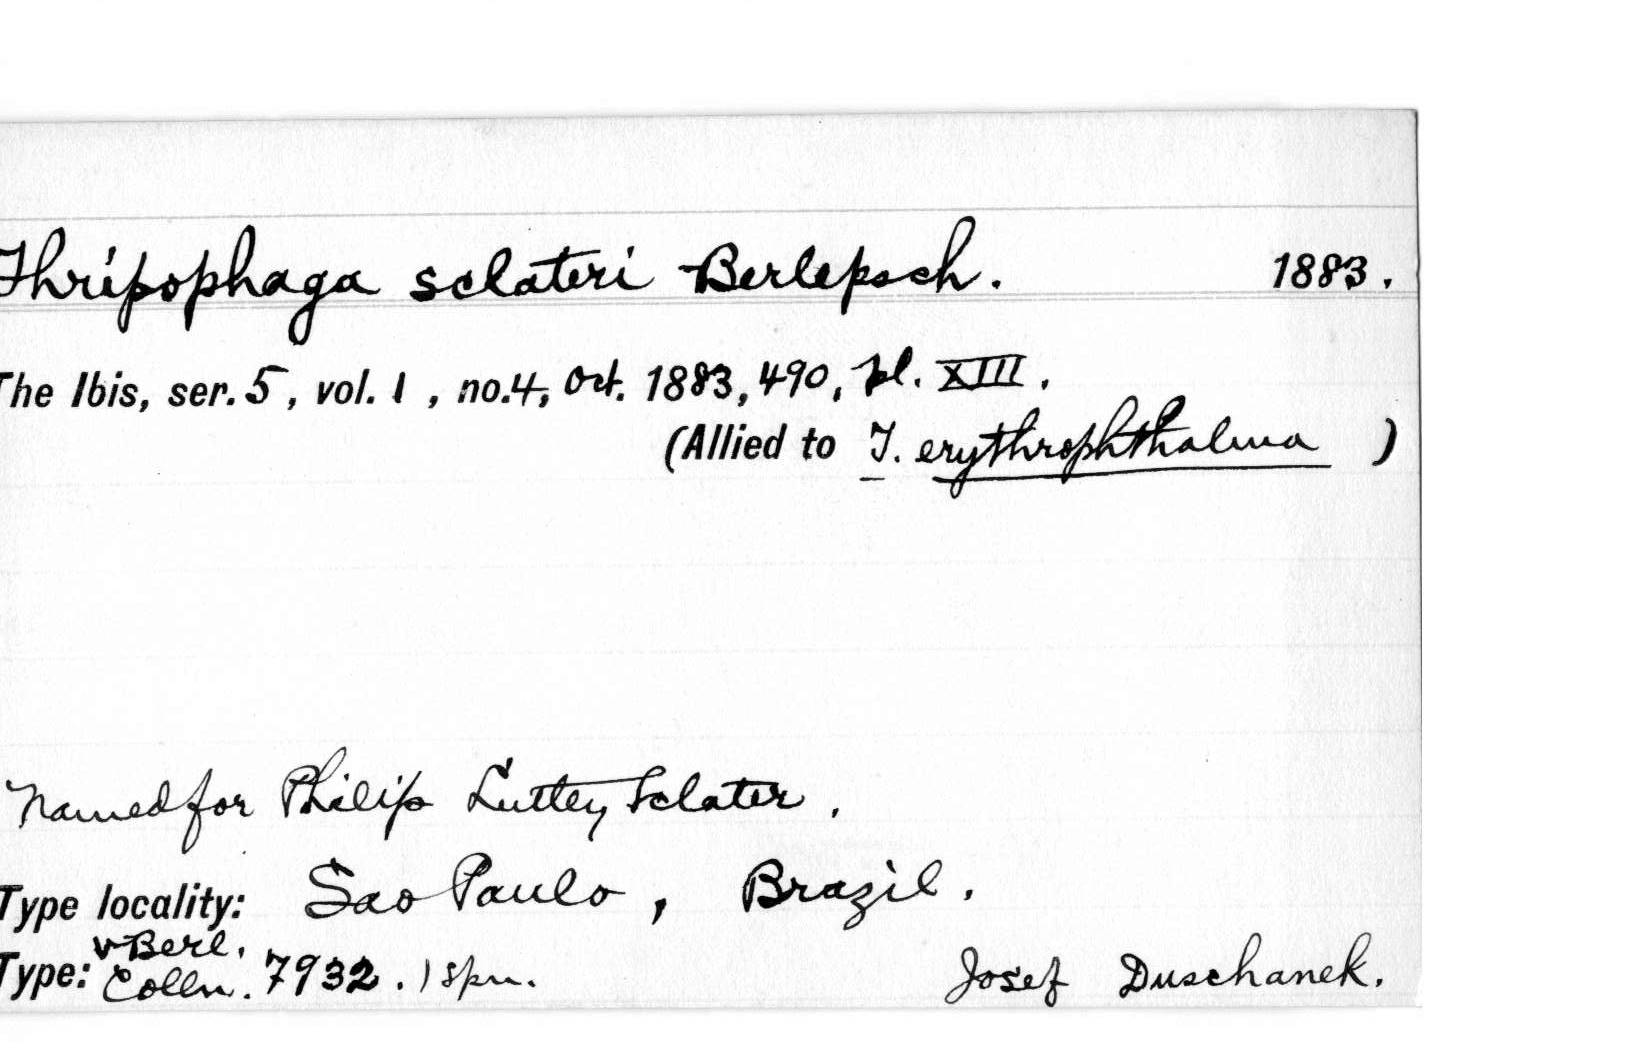 Thripophaga sclateri Berlepsch. 1883.
The Ibis, ser. 5, vol. 1, no. 4, Oct. 1883, 490, pl. XIII.
(Allied to T. erythrophthalma )
Named for Philip Lutley Sclater.
Type locality: Sao Paulo, Brazil.
v Berl.
Type: Colln. 7932. 1 spm. Josef Duschanek.